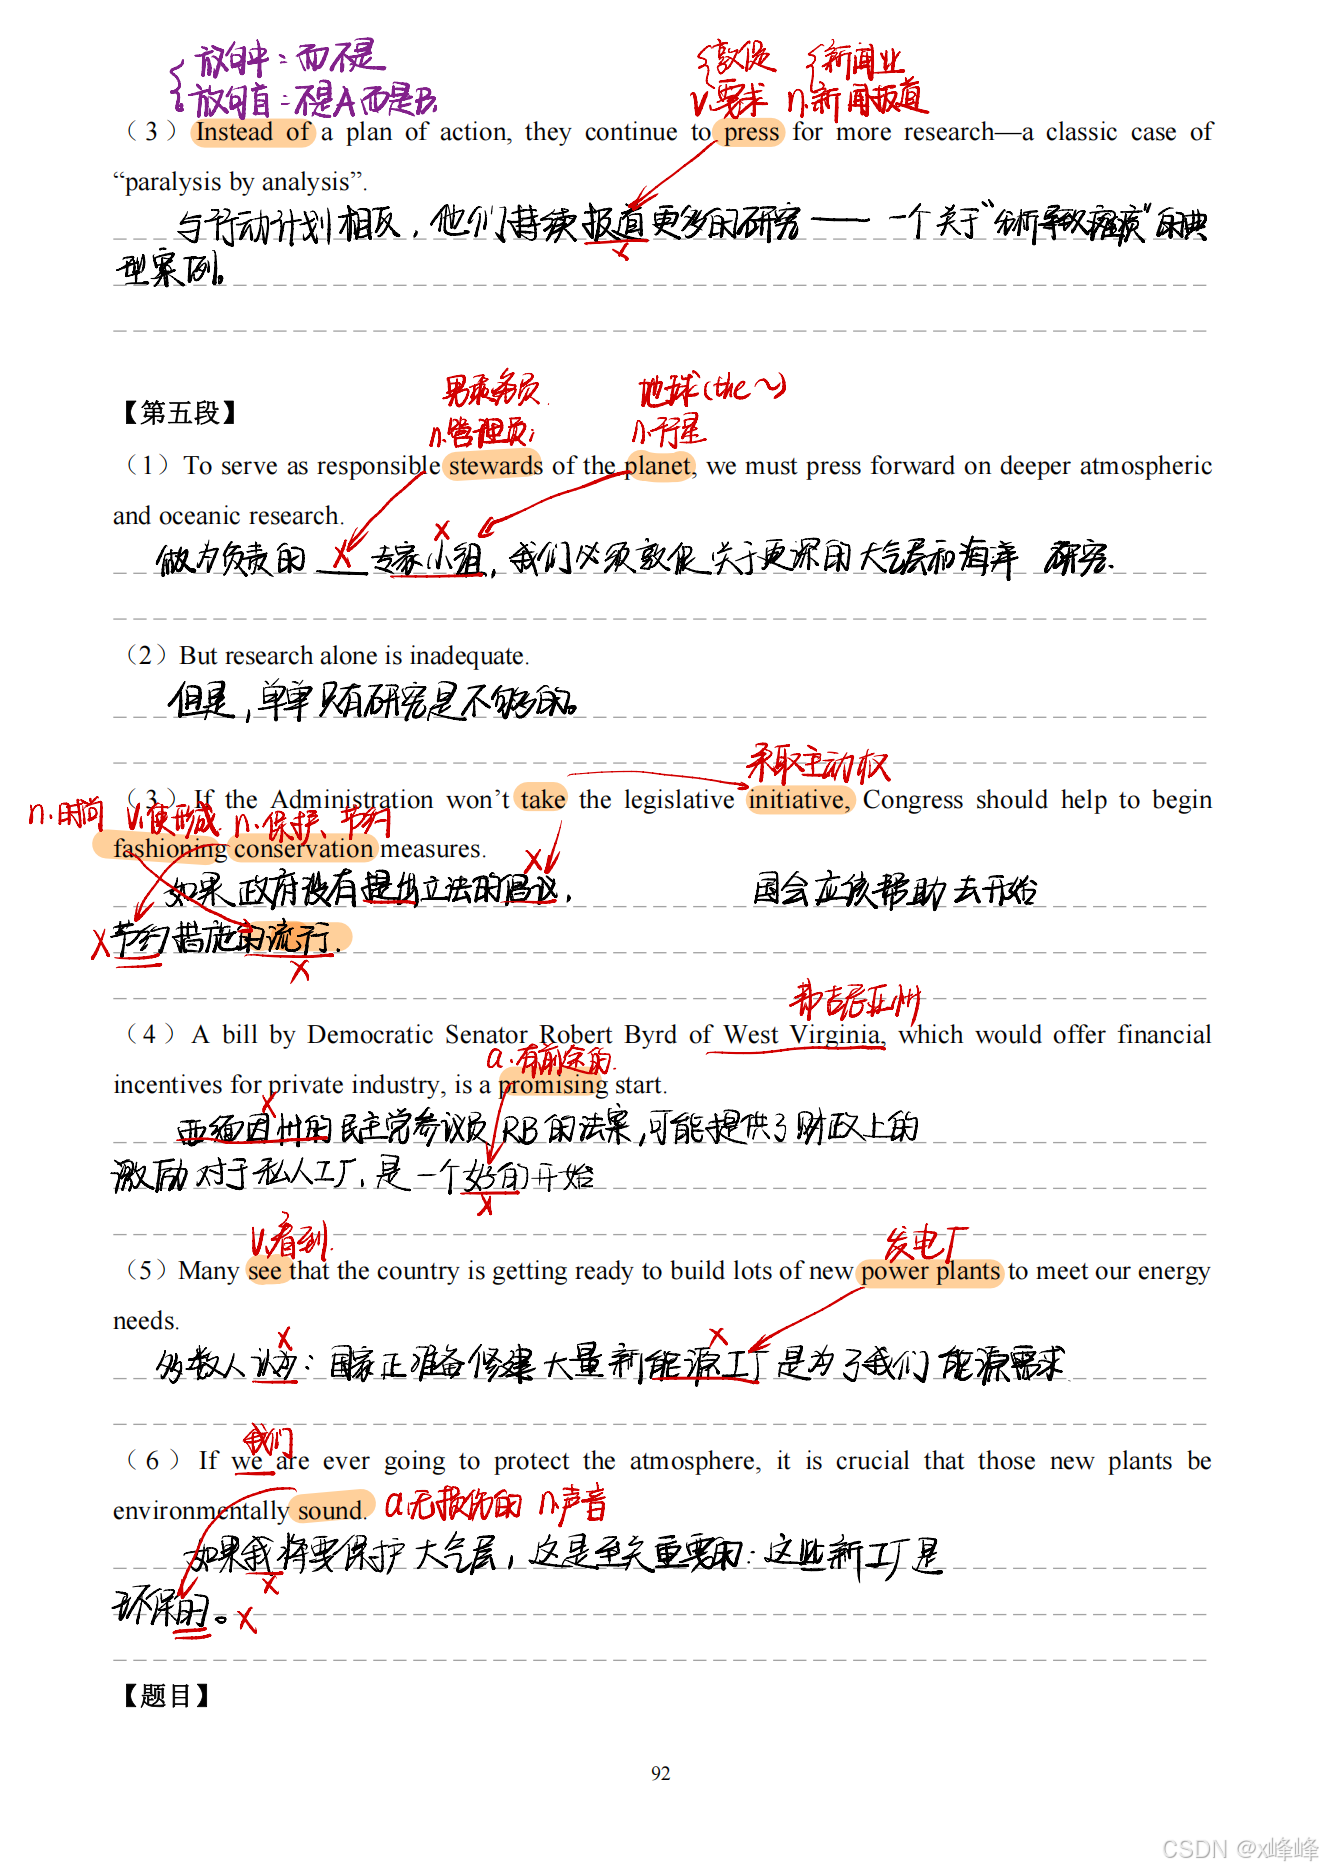 放句中：而不是
放句首：不是A而是B.
敦促
v.要求
新闻业
n.新闻报道
（3）Instead of a plan of action, they continue to press for more research—a classic case of
“paralysis by analysis”.
与行动计划相反，他们持续报道更多的研究——一个关于“分析导致瘫痪”的典
x
型案例。
男乘务员
地球(the～)
【第五段】
n.管理员；
n.行星
（1）To serve as responsible stewards of the planet, we must press forward on deeper atmospheric
and oceanic research.
x
做为负责的 x 专家小组，我们必须敦促关于更深的大气层和海洋 研究.
（2）But research alone is inadequate.
但是，单单只有研究是不够的。
采取主动权
（3）If the Administration won’t take the legislative initiative, Congress should help to begin
n.时尚 v.使形成 n.保护、节约
fashioning conservation measures.
x
如果政府没有提出立法的倡议， 国会应该帮助去开始
x 节约措施的流行.
x
弗吉尼亚州
（4）A bill by Democratic Senator Robert Byrd of West Virginia, which would offer financial
a.有前途的.
incentives for private industry, is a promising start.
x
的民主党参议员RB的法案，可能提供了财政上的
激励对于私人工厂，是一个好的开始
x
v.看到.
发电厂
（5）Many see that the country is getting ready to build lots of new power plants to meet our energy
needs.
x x
多数人认为：国家正准备修建大量新能源工厂是为了我们能源需求
我们
（6）If we are ever going to protect the atmosphere, it is crucial that those new plants be
environmentally sound. a.无损伤的 n.声音
如果我将要保护大气层，这是至关重要的：这些新工厂是
x
环保的。 x
【题目】
92
CSDN @x峰峰